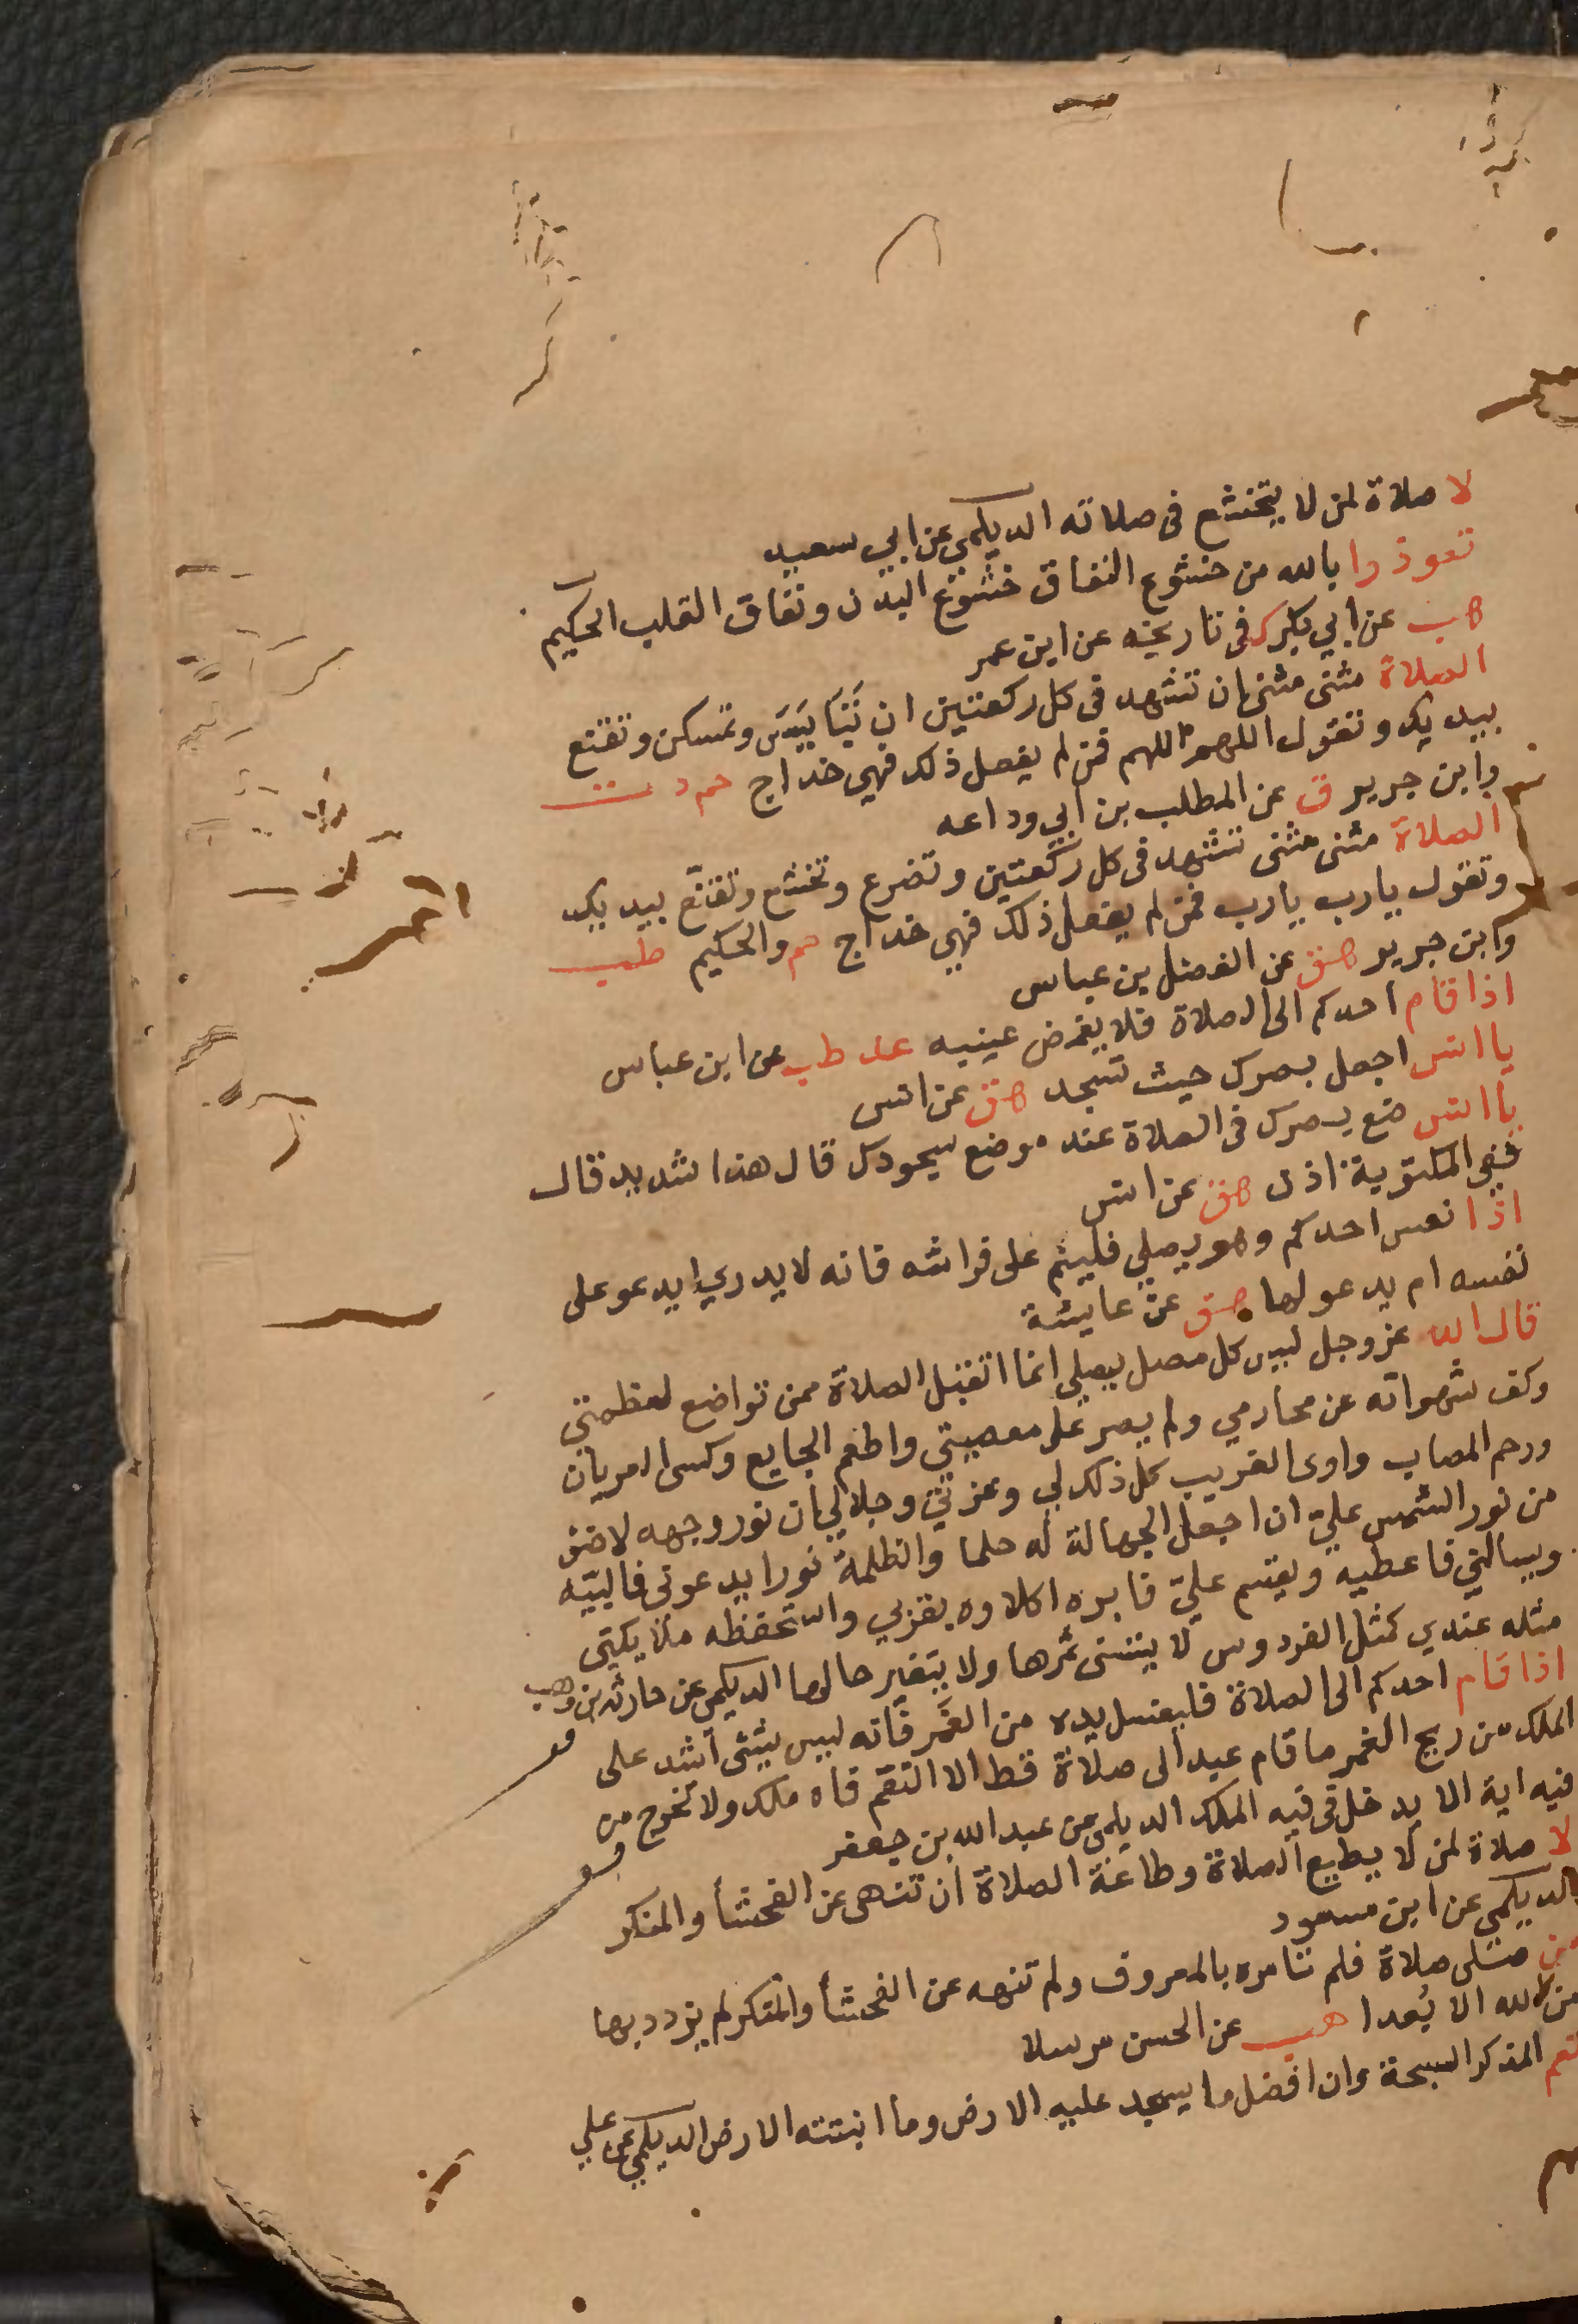 لا صلاة لمن لا يتخشع فى صلاته الديلمي عن ابي سعيد
تعوذوا بالله من خشوع النفاق خشوع البدن ونفاق القلب الحكيم
هب عن ابي بكر ك فى تاريخه عن ابن عمر
الصلاة مثنى مثنى ان تشهد فى كل ركعتين ان تَبَاَيَسَ وتمسكن وتقنع
بيديك وتقول اللهم اللهم فمن لم يفعل ذلك فهي خداج حم د ت
وابن جرير ق عن المطلب بن ابي وداعه
الصلاة مثنى مثنى تشهد فى كل ركعتين وتضرع وتخشع وتقنع بيديك
وتقول يارب يارب فمن لم يفعل ذلك فهي خداج حم والحكيم طب
وابن جرير هق عن الفضل بن عباس
اذا قام احدكم الى الصلاة فلا يغمض عينيه عد طب عن ابن عباس
يا انس اجعل بصرك حيث تسجد هق عن انس
يا انس ضع بصرك فى الصلاة عند موضع سجودك قال هذا شديد قال
ففي المكتوبة اذن هق عن انس
اذا نعس احدكم وهو يصلي فلينم على فراشه فانه لا يدري ايدعو على
نفسه ام يدعو لها هق عن عايشة
قال الله عز وجل ليس كل مصل يصلي انما اتقبل الصلاة ممن تواضع لعظمتي
وكف شهواته عن محارمي ولم يصر على معصيتي واطعم الجايع وكسى العريان
ورحم المصاب واوى الغريب كل ذلك لي وعزتي وجلالي ان نور وجهه لاضؤ
من نور الشمس عليّ ان اجعل الجهالة له حلما والظلمة نورا يدعوني فالبيه
ويسالني فاعطيه ويقسم عليّ فابره اكلاوه بقربي واستحفظه ملايكتي
مثله عندي كمثل الفردوس لا يتسنى ثمرها ولا يتغير حالها الديلمي عن حارثة بن وهب
اذا قام احدكم الى الصلاة فليغسل يده من الغَمَر فانه ليس شئ اشد على
الملك من ريح الغمر ما قام عبد الى صلاة قط الا التقم فاه ملك ولا تخرج من
فيه اية الا يدخل فى فيه الملك الديلمي عن عبد الله بن جعفر
لا صلاة لمن لا يطيع الصلاة وطاعة الصلاة ان تنهى عن الفحشأ والمنكر
الديلمي عن ابن مسعود
من صلى صلاة فلم تامره بالمعروف ولم تنهه عن الفحشأ والمنكر لم يزدد بها
من الله الا بُعدا هب عن الحسن مرسلا
نعم المذكر السبحة وان افضل ما يسجد عليه الارض وما انبتته الارض الديلمي عن علي